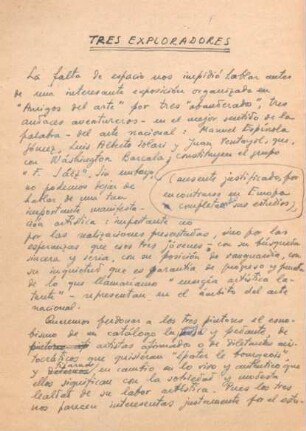 TRES EXPLORADORES
La falta de espacio nos impidió hablar antes
de una interesante exposición organizada en
"Amigos del arte" por tres "abanderados", tres
audaces aventureros - en el mejor sentido de la
palabra - del arte nacional: Manuel Espínola
Gómez, Luis Alberto Solari y Juan Ventayol, que,
con Washington Barcala, constituyen el grupo
"F. Sáez". Sin embargo,
(ausente, justificado, por
encontrarse en Europa
completando sus estudios),
no podemos dejar de
hablar de una tan
importante manifesta-
ción artística: importante no
por las realizaciones presentadas, sino por las
esperanzas que esos tres jóvenes - con su búsqueda
sincera y seria, con su posición de vanguardia, con
su inquietud que es garantía de progreso y
de lo que llamaríamos "energía artística la-
tente" - representan en el ámbito del arte
nacional.
Queremos perdonar a los tres pintores el
de un catálogo y petante de
artistas afirmados o de diletantes
que quisieran "épater le bourgeois",
y en cambio en lo vivo y auténtico que
ellos significan con la sobriedad y modesta
lealtad de su labor artística. Pues los tres
nos parecen interesantes justamente por el